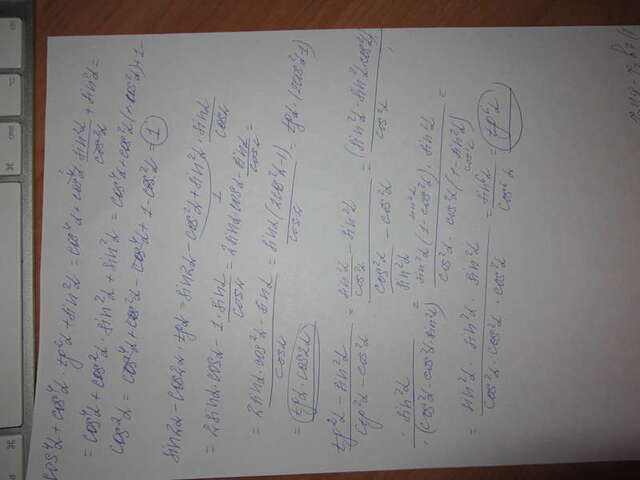 cos⁴α + cos⁴α · tg²α + sin²α = cos⁴α + cos⁴α · sin²α/cos²α + sin²α =
= cos⁴α + cos²α · sin²α + sin²α = cos⁴α + cos²α (1-cos²α) + 1 -
cos²α = cos⁴α + cos²α - cos⁴α + 1 - cos²α = 1
sin2α - cos2α · tgα = sin2α - cos²α + sin²α/1 · sinα/cosα
= 2sinα · cosα - 1 · sinα/cosα = 2sinα cosα - sinα/cosα =
= 2sinα · cos²α - sinα/cosα = sinα (2cos²α - 1)/cosα = tgα · (2cos²α - 1)
= tgα · cos2α
tg²α - sin²α/ctg²α - cos²α = sin²α/cos²α - sin²α/cos²α/sin²α - cos²α = (sin²α - sin²α · cos²α)/cos²α
· sin²α/(cos²α - cos²α · sin²α) = sin²α (1 - cos²α) · sin²α/cos²α · cos²α (1 - sin²α) =
= sin²α · sin²α · sin²α/cos²α · cos²α · cos²α = sin⁶α/cos⁶α = tg⁶α